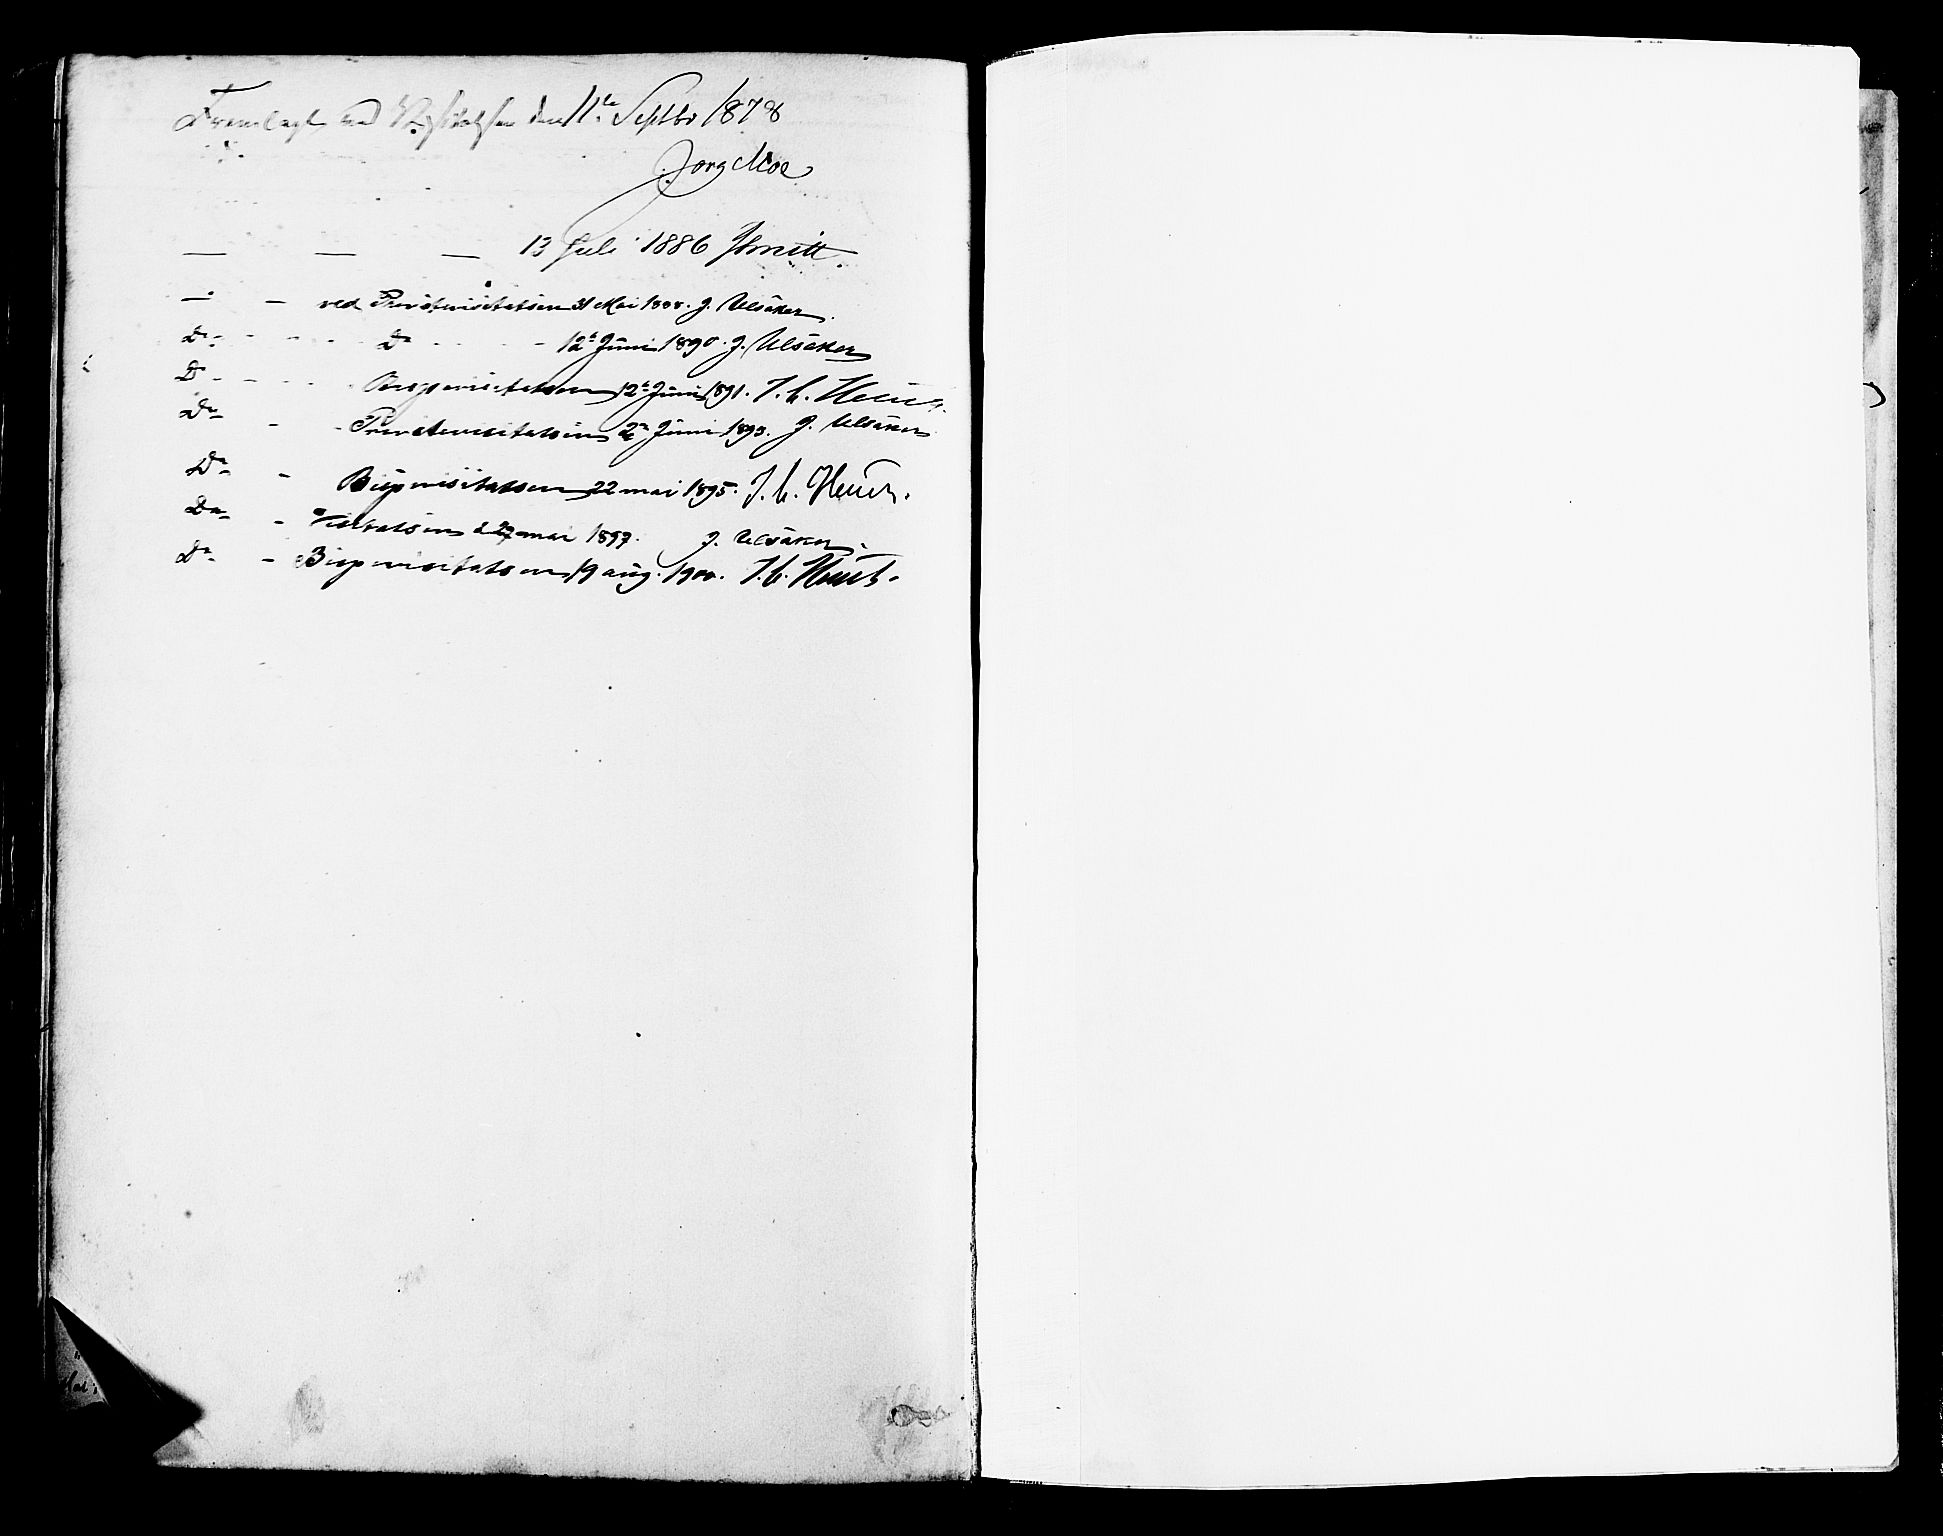 Fremlagt ved Visitatsen den 11te Septbr 1878
Jørg Moe
— — — 13 Juli 1886 Smitt.
— — ved Provstevisitatsen 31 Mai 1888. J. Ulsaker.
Do - - - - Do - - - - 12te Juni 1890. J. Ulsaker
Do - - - - Bispevisitatsen 12te Juni 1891. J. C. Heuch.
Do - - Provstevisitatsen 2n Juni 1893. J. Ulsaker
Do - Bispevisitatsen 22 mai 1895. J. C. Heuch.
Do - Visitatsen d 29 mai 1897. J. Ulsaker.
Do - Bispevisitatsen 19 aug. 1900. J. C. Heuch.